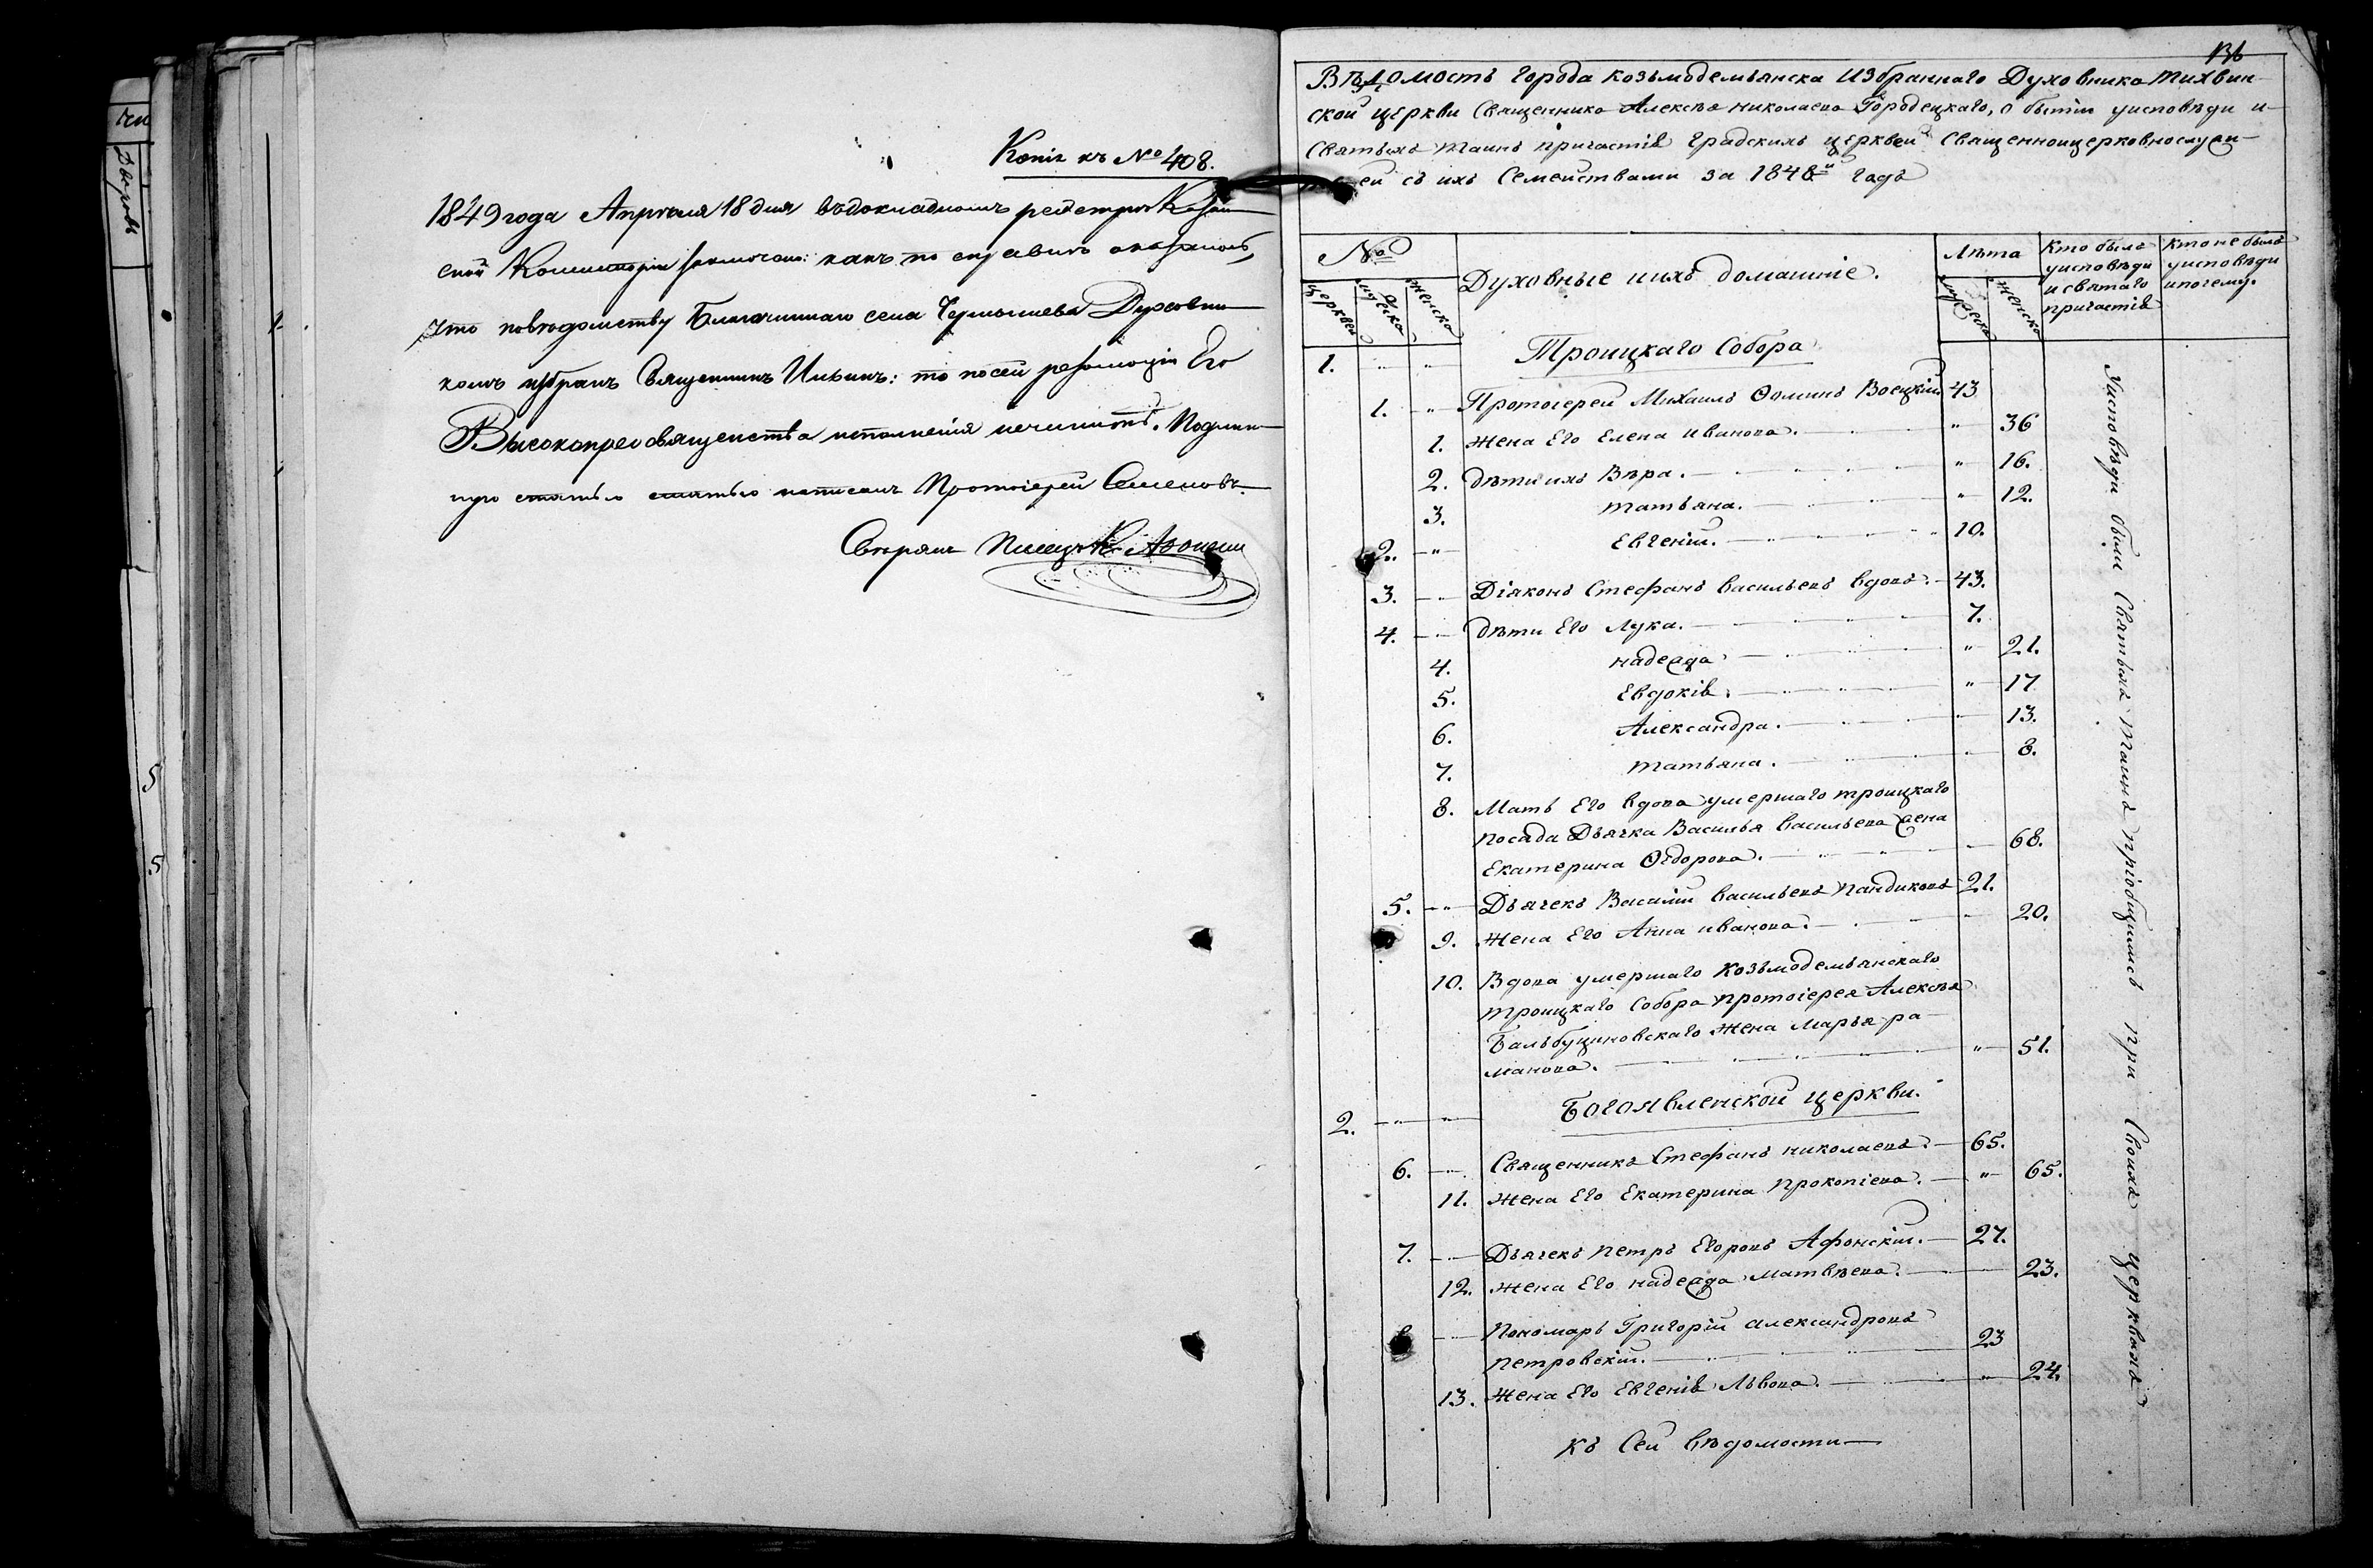 Копія къ № 408.
1849 года Апрѣля 18 дня въ докладномъ реэстрѣ Казан-
ской Консисторіи заключено: какъ по справкѣ оказалось,
что по вѣдомству Благочиннаго села Чермышева Духовни-
комъ избранъ Священникъ Ильинъ: то по сей резолюціи Его
Высокопреосвященства исполненія нечинить. Подлин-
ную статью статью написалъ Протоіерей Семеновъ.
Свѣрялъ Писецъ
136
Вѣдомость города Козьмодемьянска Избраннаго Духовника Тихвин-
ской церкви Священника Алексѣя Николаева Городецкаго, о бытіи уисповѣди и
Святыхъ Таинъ причастія Градскихъ церквей Священноцерковнослужи-
телей съ ихъ Семействами за 1848й Годъ
№
Духовные иихъ домашніе.
Лѣта
Кто былъ уисповѣди и святаго причастія
Кто не былъ уисповѣди ипочему.
церквей
мужска
женска
мужска
женска
1. " " Троицкаго Собора
1. " Протоіерей Михаилъ Ѳоминъ Воецкій 43
1. Жена Его Елена Иванова. " 36
2. Дѣти ихъ Вѣра. " 16.
3. Татьяна. " 12.
2. " Евгеній. 10.
3. " Діяконъ Стефанъ Васильевъ вдовъ. 43.
4. " Дѣти Его Лука. 7.
4. Надежда " 21.
5. Евдокія. " 17
6. Александра. 13.
7. Татьяна. 8.
8. Мать Его вдова умершаго Троицкаго
Посада Дьячка Василья Васильева жена
Екатерина Ѳедорова. 68.
5. " Дьячекъ Василій Васильевъ Пандиковъ 21.
9. Жена Его Анна Иванова. 20.
10. Вдова умершаго Козьмодемьянскаго
Троицкаго Собора Протоіерея Алексѣя
Бальбуциновскаго Жена Марья Ро-
манова. " 51.
2. " Богоявленской церкви.
6. " Священникъ Стефанъ Николаевъ. 65.
11. Жена Его Екатерина Прокопіева. " 65.
7. " Дьячекъ Петръ Егоровъ Афонскій. 27.
12. Жена Его Надежда Матвѣева. 23.
8 Пономарь Григорій Александровъ
Петровскій. 23
13. Жена Его Евгенія Львова. " 24.
Уисповѣди были Святыхъ Таинъ пріобщились при Своихъ церквахъ
Къ Сей вѣдомости